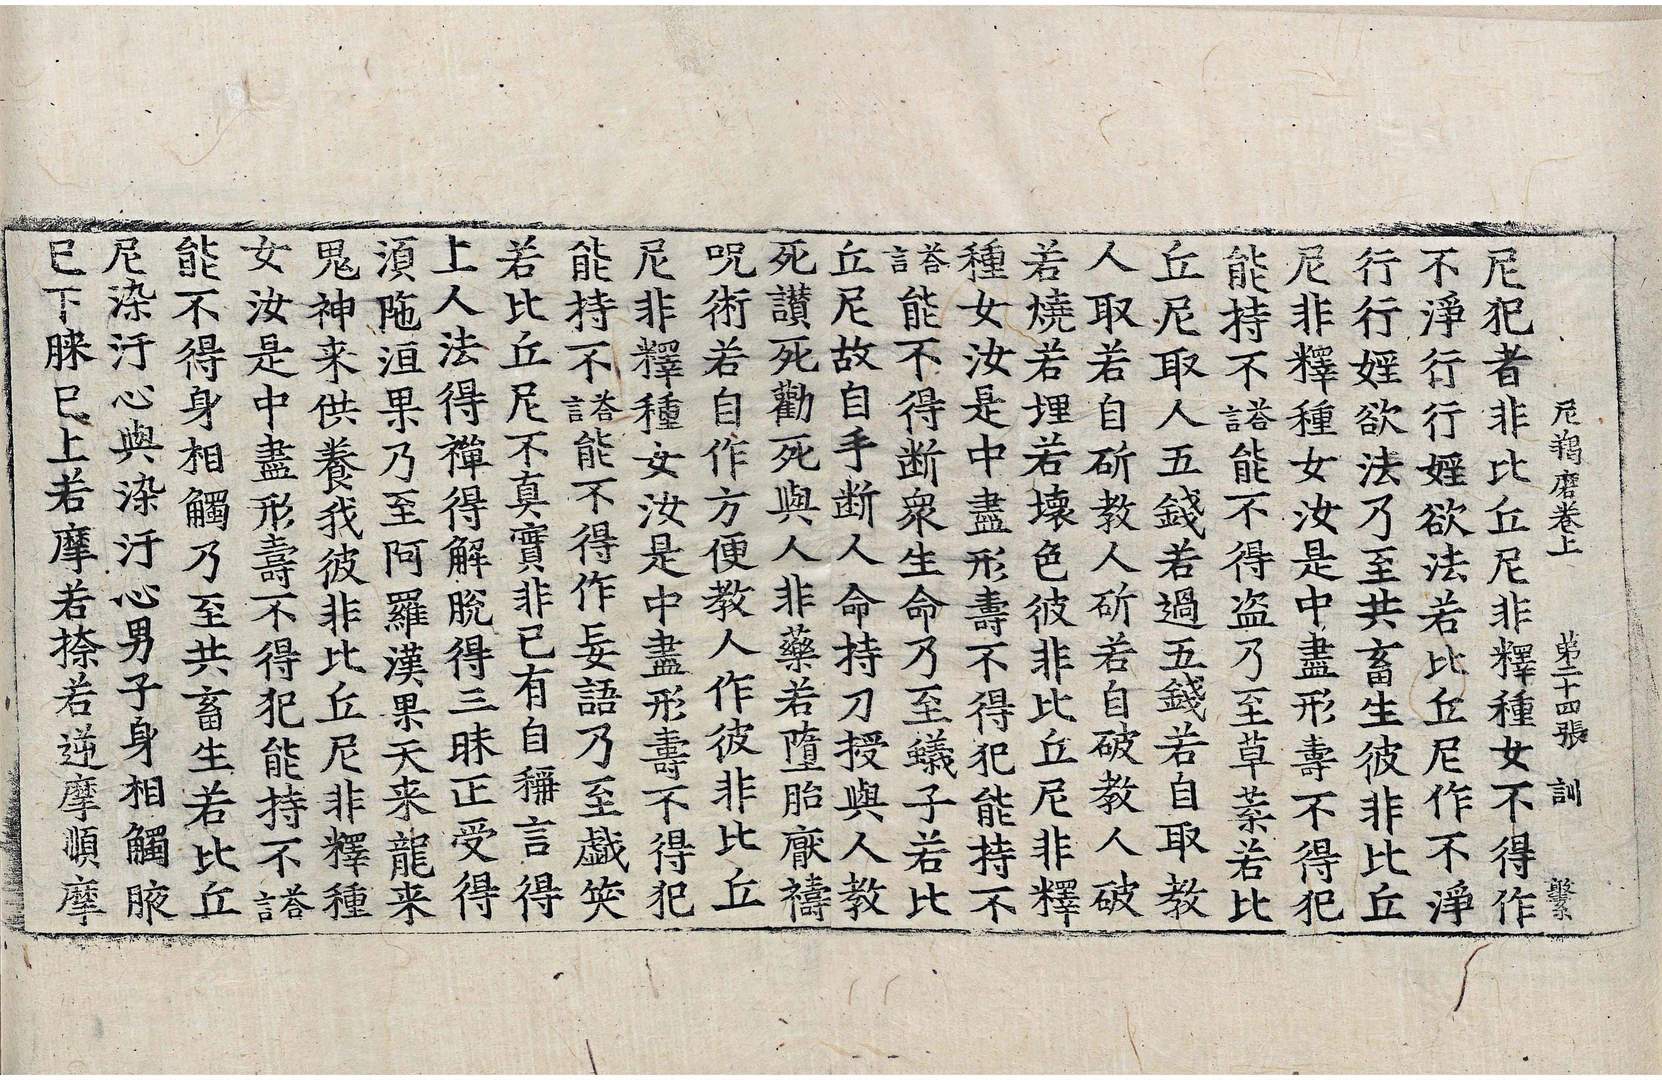 尼羯磨卷上 第二十四張 訓
尼犯者非比丘尼非釋種女不得作
不淨行行婬欲法若比丘尼作不淨
行行婬欲法乃至共畜生彼非比丘
尼非釋種女汝是中盡形壽不得犯
能持不荅言能不得盜乃至草葉若比
丘尼取人五錢若過五錢若自取教
人取若自斫教人斫若自破教人破
若燒若埋若壞色彼非比丘尼非釋
種女汝是中盡形壽不得犯能持不
荅言能不得断衆生命乃至蟻子若比
丘尼故自手断人命持刀授與人教
死讃死勸死與人非藥若墮胎厭禱
呪術若自作方便教人作彼非比丘
尼非釋種女汝是中盡形壽不得犯
能持不荅言能不得作妄語乃至戯笑
若比丘尼不真實非已有自稱言得
上人法得禪得解脫得三昧正受得
湏陁洹果乃至阿羅漢果天来龍来
鬼神来供養我彼非比丘尼非釋種
女汝是中盡形壽不得犯能持不荅言
能不得身相觸乃至共畜生若比丘
尼染汙心與染汙心男子身相觸腋
已下𦜝已上若摩若捺若逆摩順摩